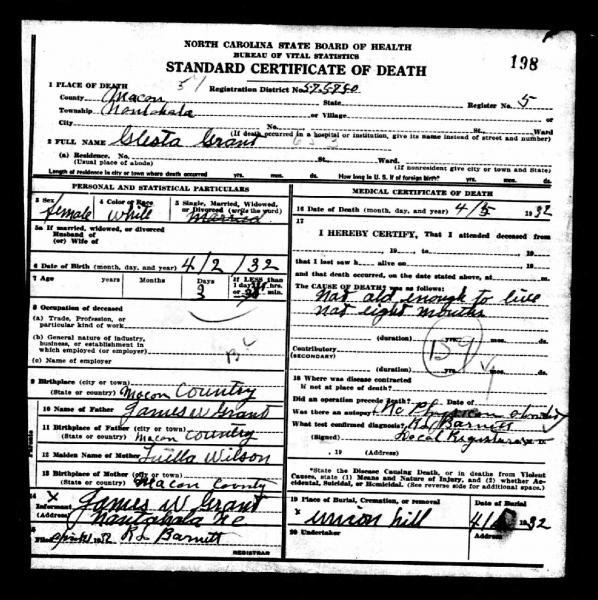 NORTH CAROLINA STATE BOARD OF HEALTH
BUREAU OF VITAL STATISTICS
STANDARD CERTIFICATE OF DEATH
198
1 PLACE OF DEATH
Registration District No.
County Macon State Register No. 5
Township Nantahala or Village
City No. St. Ward
(If death occurred in a hospital or institution, give its name instead of street and number)
2 FULL NAME Glesta Grant
(a) Residence, No. St. Ward
(Usual place of abode) (If nonresident give city or town and State)
Length of residence in city or town where death occurred yrs. mos. ds. How long in U. S. if of foreign birth? yrs. mos. ds.
PERSONAL AND STATISTICAL PARTICULARS
3 Sex 4 Color or Race 5 Single, Married, Widowed, or Divorced (write the word)
female White Married
5a If married, widowed, or divorced
Husband of
(or) Wife of
6 Date of Birth (month, day, and year) 4/2/32
7 Age years Months Days If LESS than 1 day hrs. or min.
3
8 Occupation of deceased
(a) Trade, Profession, or particular kind of work
(b) General nature of industry, business, or establishment in which employed (or employer)
(c) Name of employer
9 Birthplace (city or town)
(State or country) Macon Country
Parents
10 Name of Father James W Grant
11 Birthplace of Father (city or town)
(State or country) Macon Country
12 Maiden Name of Mother Luilla Wilson
13 Birthplace of Mother (city or town)
(State or country) Macon County
14 X
Informant James W Grant
(Address) Nantahala NC
Filed 1932 R L Barnett
REGISTRAR
MEDICAL CERTIFICATE OF DEATH
16 Date of Death (month, day, and year) 4/5 1932
17
I HEREBY CERTIFY, That I attended deceased from
19 to 19
that I last saw h alive on 19
and that death occurred, on the date stated above, at m.
The CAUSE OF DEATH was as follows:
Not old enough to live
not eight months
(duration) yrs. mos. ds.
159
Contributory
(SECONDARY)
(duration) yrs. mos. ds.
18 Where was disease contracted
if not at place of death?
Did an operation precede death? Date of
Was there an autopsy? No Physician attending
What test confirmed diagnosis? R L Barnett
(Signed) Local Registrar
, 19 (Address)
*State the Disease Causing Death, or in deaths from Violent Causes, state (1) Means and Nature of Injury, and (2) whether Accidental, Suicidal, or Homicidal. (See reverse side for additional space.)
19 Place of Burial, Cremation, or removal Date of Burial
X union hill 4/ 1932
20 Undertaker Address